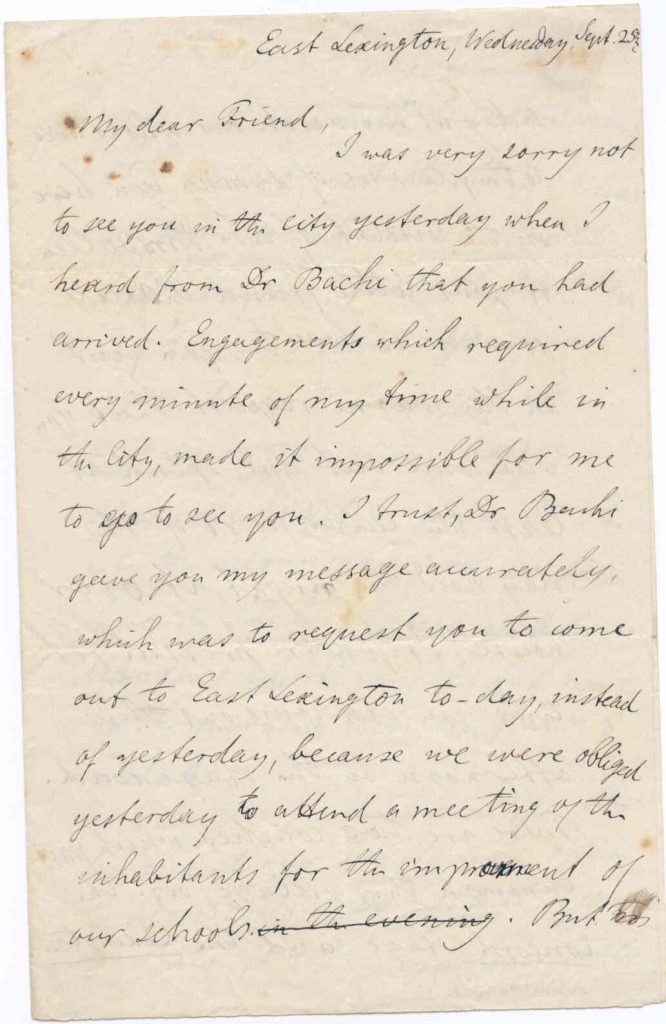 East Lexington, Wednesday, Sept. 25th
My dear Friend,
I was very sorry not
to see you in the city yesterday when I
heard from Dr Bachi that you had
arrived. Engagements which required
every minute of my time while in
the City, made it impossible for me
to go to see you. I trust, Dr Bachi
gave you my message accurately,
which was to request you to come
out to East Lexington to-day, instead
of yesterday, because we were obliged
yesterday to attend a meeting of the
inhabitants for the improvement of
our schools in the evening. But